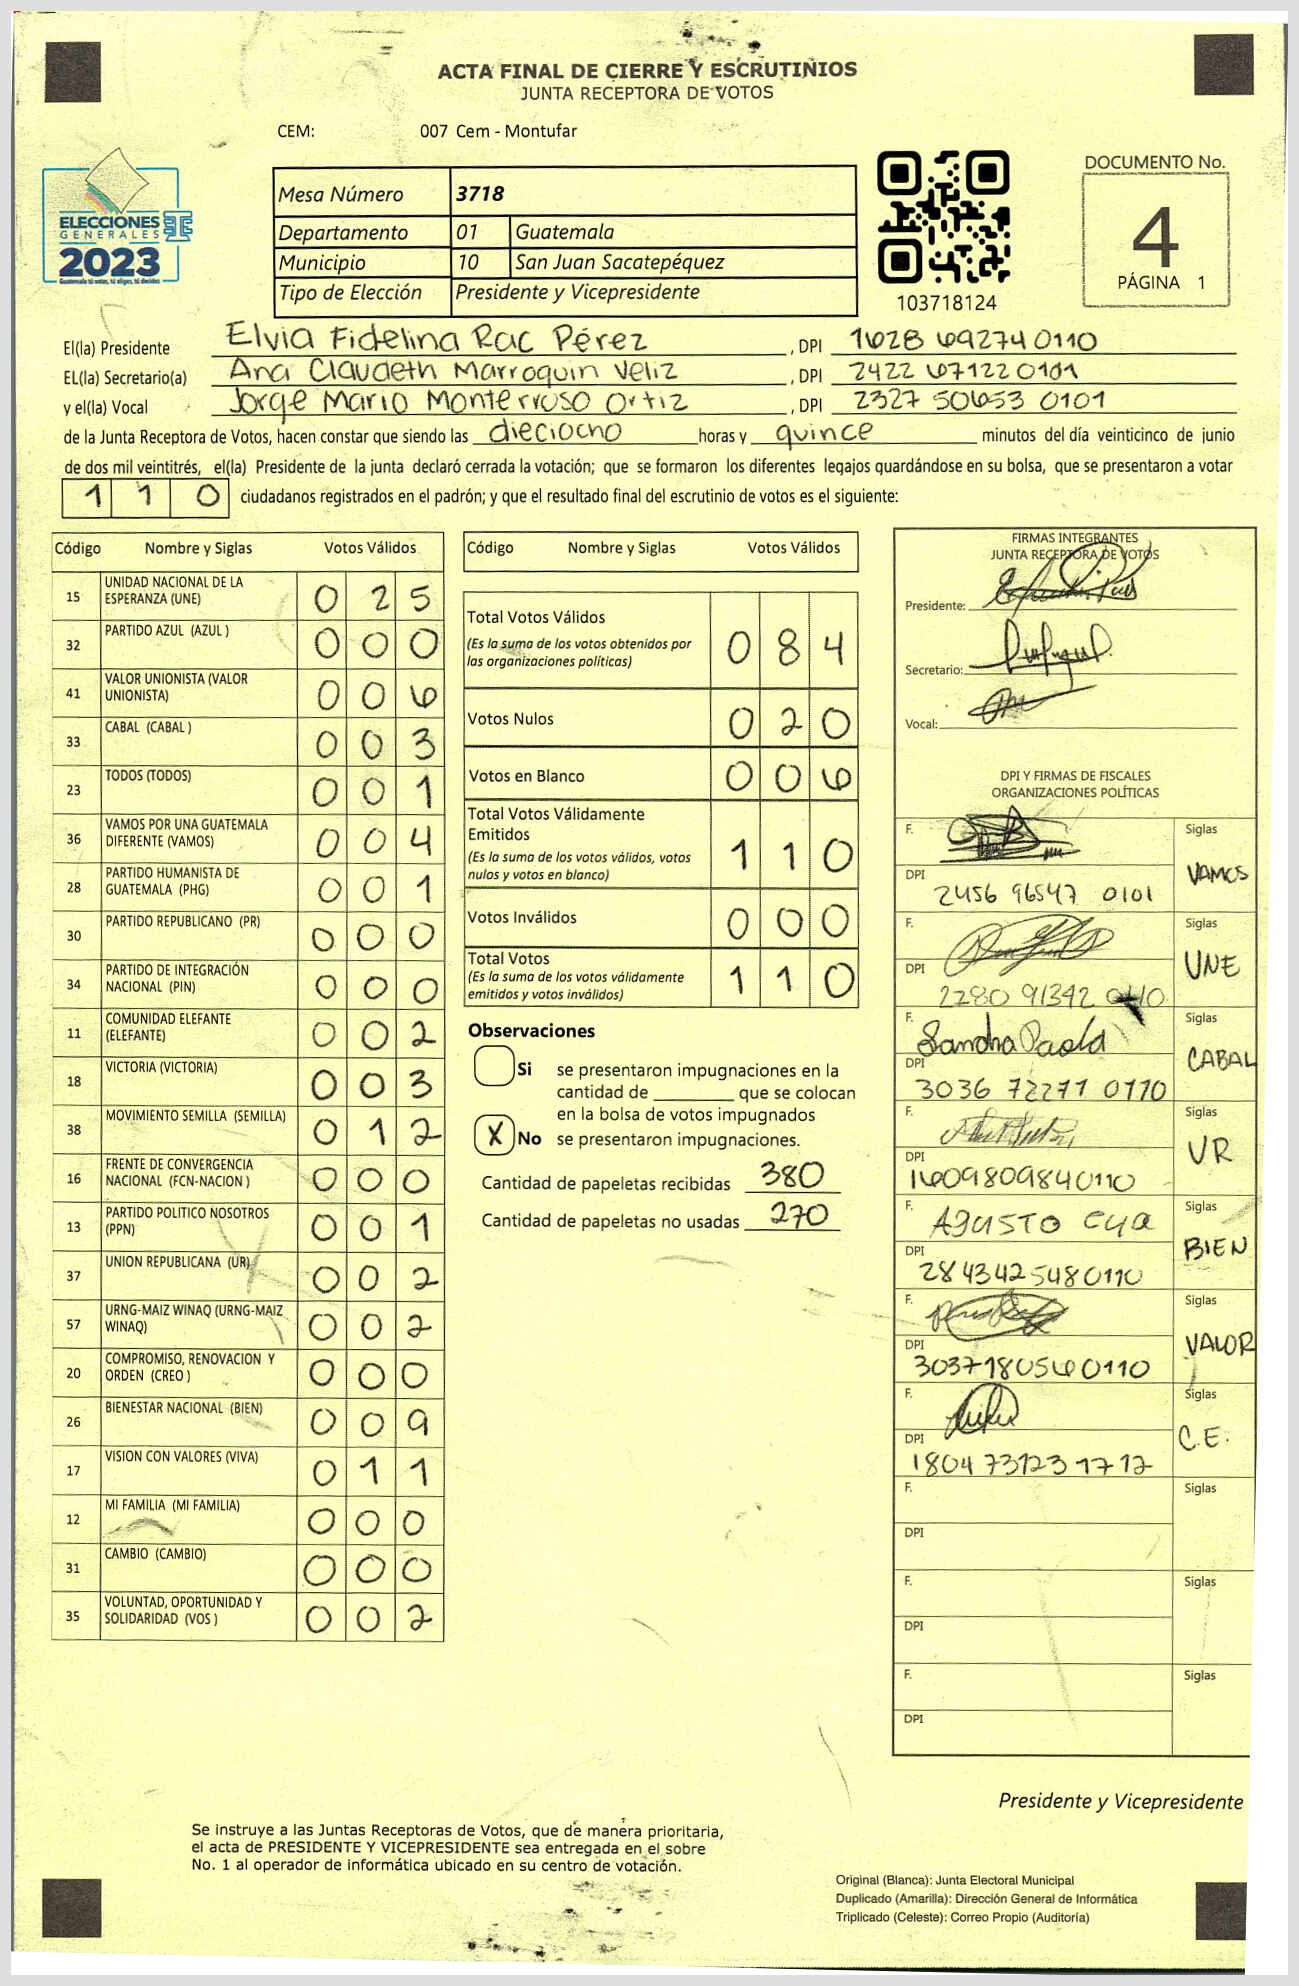 ACTA FINAL DE CIERRE Y ESCRUTINIOS
JUNTA RECEPTORA DE VOTOS
CEM: 007 Cem - Montufar
ELECCIONES
GENERALES
2023
Guatemala tú votas, tú eliges, tú decides
TSE
Mesa Número 3718
Departamento 01 Guatemala
Municipio 10 San Juan Sacatepéquez
Tipo de Elección Presidente y Vicepresidente
103718124
DOCUMENTO No.
4
PÁGINA 1
El(la) Presidente Elvia Fidelina Rac Pérez , DPI 1628 69274 0110
EL(la) Secretario(a) Ana Claudeth Marroquin Veliz , DPI 2422 67122 0101
y el(la) Vocal Jorge Mario Monterroso Ortiz , DPI 2327 50653 0101
de la Junta Receptora de Votos, hacen constar que siendo las dieciocho horas y quince minutos del día veinticinco de junio
de dos mil veintitrés, el(la) Presidente de la junta declaró cerrada la votación; que se formaron los diferentes legajos quardándose en su bolsa, que se presentaron a votar
1 1 0 ciudadanos registrados en el padrón; y que el resultado final del escrutinio de votos es el siguiente:
Código Nombre y Siglas Votos Válidos
15 UNIDAD NACIONAL DE LA ESPERANZA (UNE) 0 2 5
32 PARTIDO AZUL (AZUL ) 0 0 0
41 VALOR UNIONISTA (VALOR UNIONISTA) 0 0 6
33 CABAL (CABAL ) 0 0 3
23 TODOS (TODOS) 0 0 1
36 VAMOS POR UNA GUATEMALA DIFERENTE (VAMOS) 0 0 4
28 PARTIDO HUMANISTA DE GUATEMALA (PHG) 0 0 1
30 PARTIDO REPUBLICANO (PR) 0 0 0
34 PARTIDO DE INTEGRACIÓN NACIONAL (PIN) 0 0 0
11 COMUNIDAD ELEFANTE (ELEFANTE) 0 0 2
18 VICTORIA (VICTORIA) 0 0 3
38 MOVIMIENTO SEMILLA (SEMILLA) 0 1 2
16 FRENTE DE CONVERGENCIA NACIONAL (FCN-NACION ) 0 0 0
13 PARTIDO POLITICO NOSOTROS (PPN) 0 0 1
37 UNION REPUBLICANA (UR) 0 0 2
57 URNG-MAIZ WINAQ (URNG-MAIZ WINAQ) 0 0 2
20 COMPROMISO, RENOVACION Y ORDEN (CREO ) 0 0 0
26 BIENESTAR NACIONAL (BIEN) 0 0 9
17 VISION CON VALORES (VIVA) 0 1 1
12 MI FAMILIA (MI FAMILIA) 0 0 0
31 CAMBIO (CAMBIO) 0 0 0
35 VOLUNTAD, OPORTUNIDAD Y SOLIDARIDAD (VOS ) 0 0 2
Código Nombre y Siglas Votos Válidos
Total Votos Válidos 0 8 4
(Es la suma de los votos obtenidos por
las organizaciones políticas)
Votos Nulos 0 2 0
Votos en Blanco 0 0 6
Total Votos Válidamente
Emitidos 1 1 0
(Es la suma de los votos válidos, votos
nulos y votos en blanco)
Votos Inválidos 0 0 0
Total Votos 1 1 0
(Es la suma de los votos válidamente
emitidos y votos inválidos)
Observaciones
Si se presentaron impugnaciones en la
cantidad de ________ que se colocan
en la bolsa de votos impugnados
X No se presentaron impugnaciones.
Cantidad de papeletas recibidas 380
Cantidad de papeletas no usadas 270
FIRMAS INTEGRANTES
JUNTA RECEPTORA DE VOTOS
Presidente:
Secretario:
Vocal:
DPI Y FIRMAS DE FISCALES
ORGANIZACIONES POLÍTICAS
F. Siglas
DPI 2456 96547 0101 VAMOS
F. Siglas
DPI 2280 91342 0110 UNE
F. Sandra Paola Siglas
DPI 3036 72271 0110 CABAL
F. Siglas
DPI 1609809840110 VR
F. AGUSTO Siglas
DPI 2843425480110 BIEN
F. Siglas
DPI 3037180560110 VALOR
F. Siglas
DPI 1804 73123 1712 C.E.
F. Siglas
DPI
F. Siglas
DPI
F. Siglas
DPI
Presidente y Vicepresidente
Se instruye a las Juntas Receptoras de Votos, que de manera prioritaria,
el acta de PRESIDENTE Y VICEPRESIDENTE sea entregada en el sobre
No. 1 al operador de informática ubicado en su centro de votación.
Original (Blanca): Junta Electoral Municipal
Duplicado (Amarilla): Dirección General de Informática
Triplicado (Celeste): Correo Propio (Auditoría)